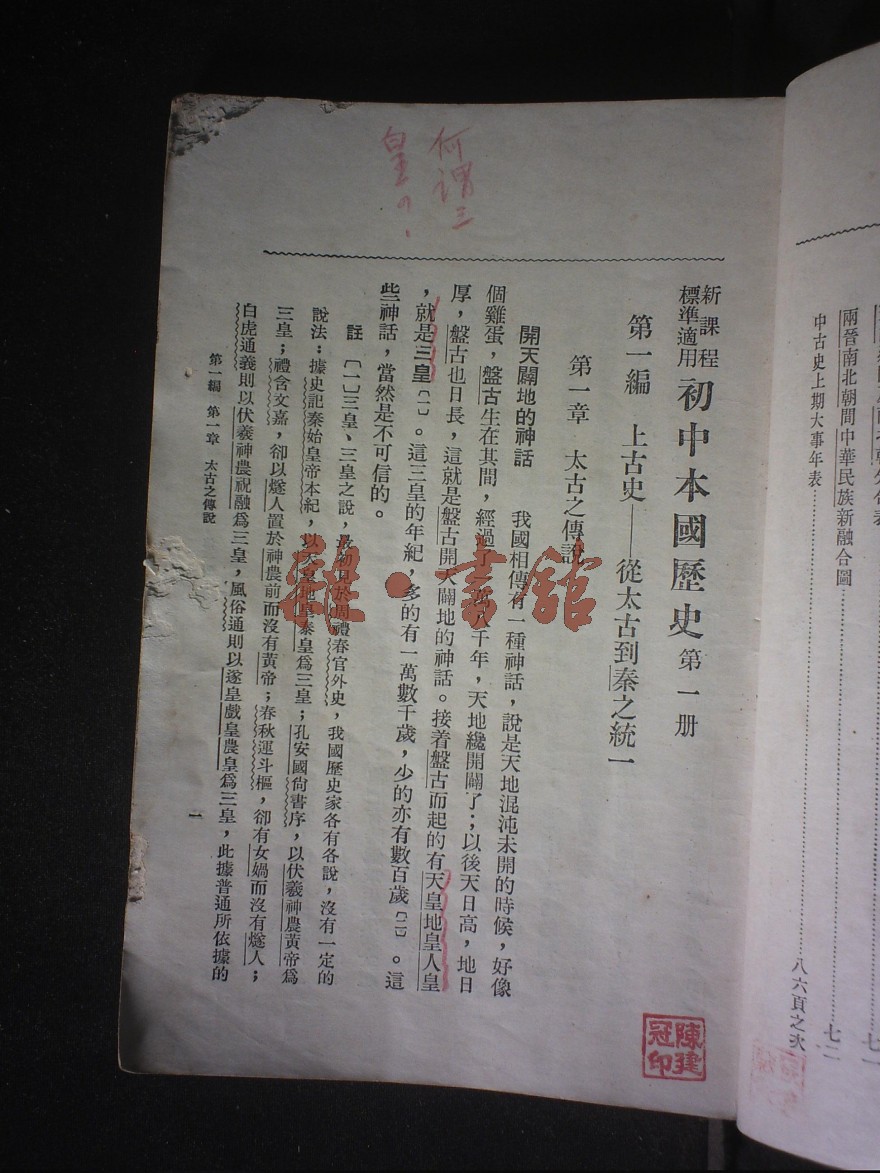 何謂三
皇の、
新課程
標準適用
初中本國歷史 第一册
第一編　上古史——從太古到秦之統一
第一章　太古之傳說
開天闢地的神話　我國相傳有一種神話，說是天地混沌未開的時候，好像
個雞蛋，盤古生在其間，經過了一萬八千年，天地纔開闢了；以後天日高，地日
厚，盤古也日長，這就是盤古開天闢地的神話。接着盤古而起的有天皇地皇人皇
，就是三皇〔一〕。這三皇的年紀，多的有一萬數千歲，少的亦有數百歲〔二〕。這
些神話，當然是不可信的。
註　〔一〕三皇、三皇之說，最初見於周禮春官外史，我國歷史家各有各說，沒有一定的
說法：據史記秦始皇帝本紀，以天皇地皇泰皇爲三皇；孔安國尙書序，以伏羲神農黃帝爲
三皇；禮含文嘉，卻以燧人置於神農前而沒有黃帝；春秋運斗樞，卻有女媧而沒有燧人；
白虎通義則以伏羲神農祝融爲三皇，風俗通則以遂皇戲皇農皇爲三皇，此據普通所依據的
第一編　第一章　太古之傳說
一
陳建
冠印
七一
兩晉南北朝間中華民族新融合圖 七二
中古史上期大事年表 八六頁之次
雜·書館